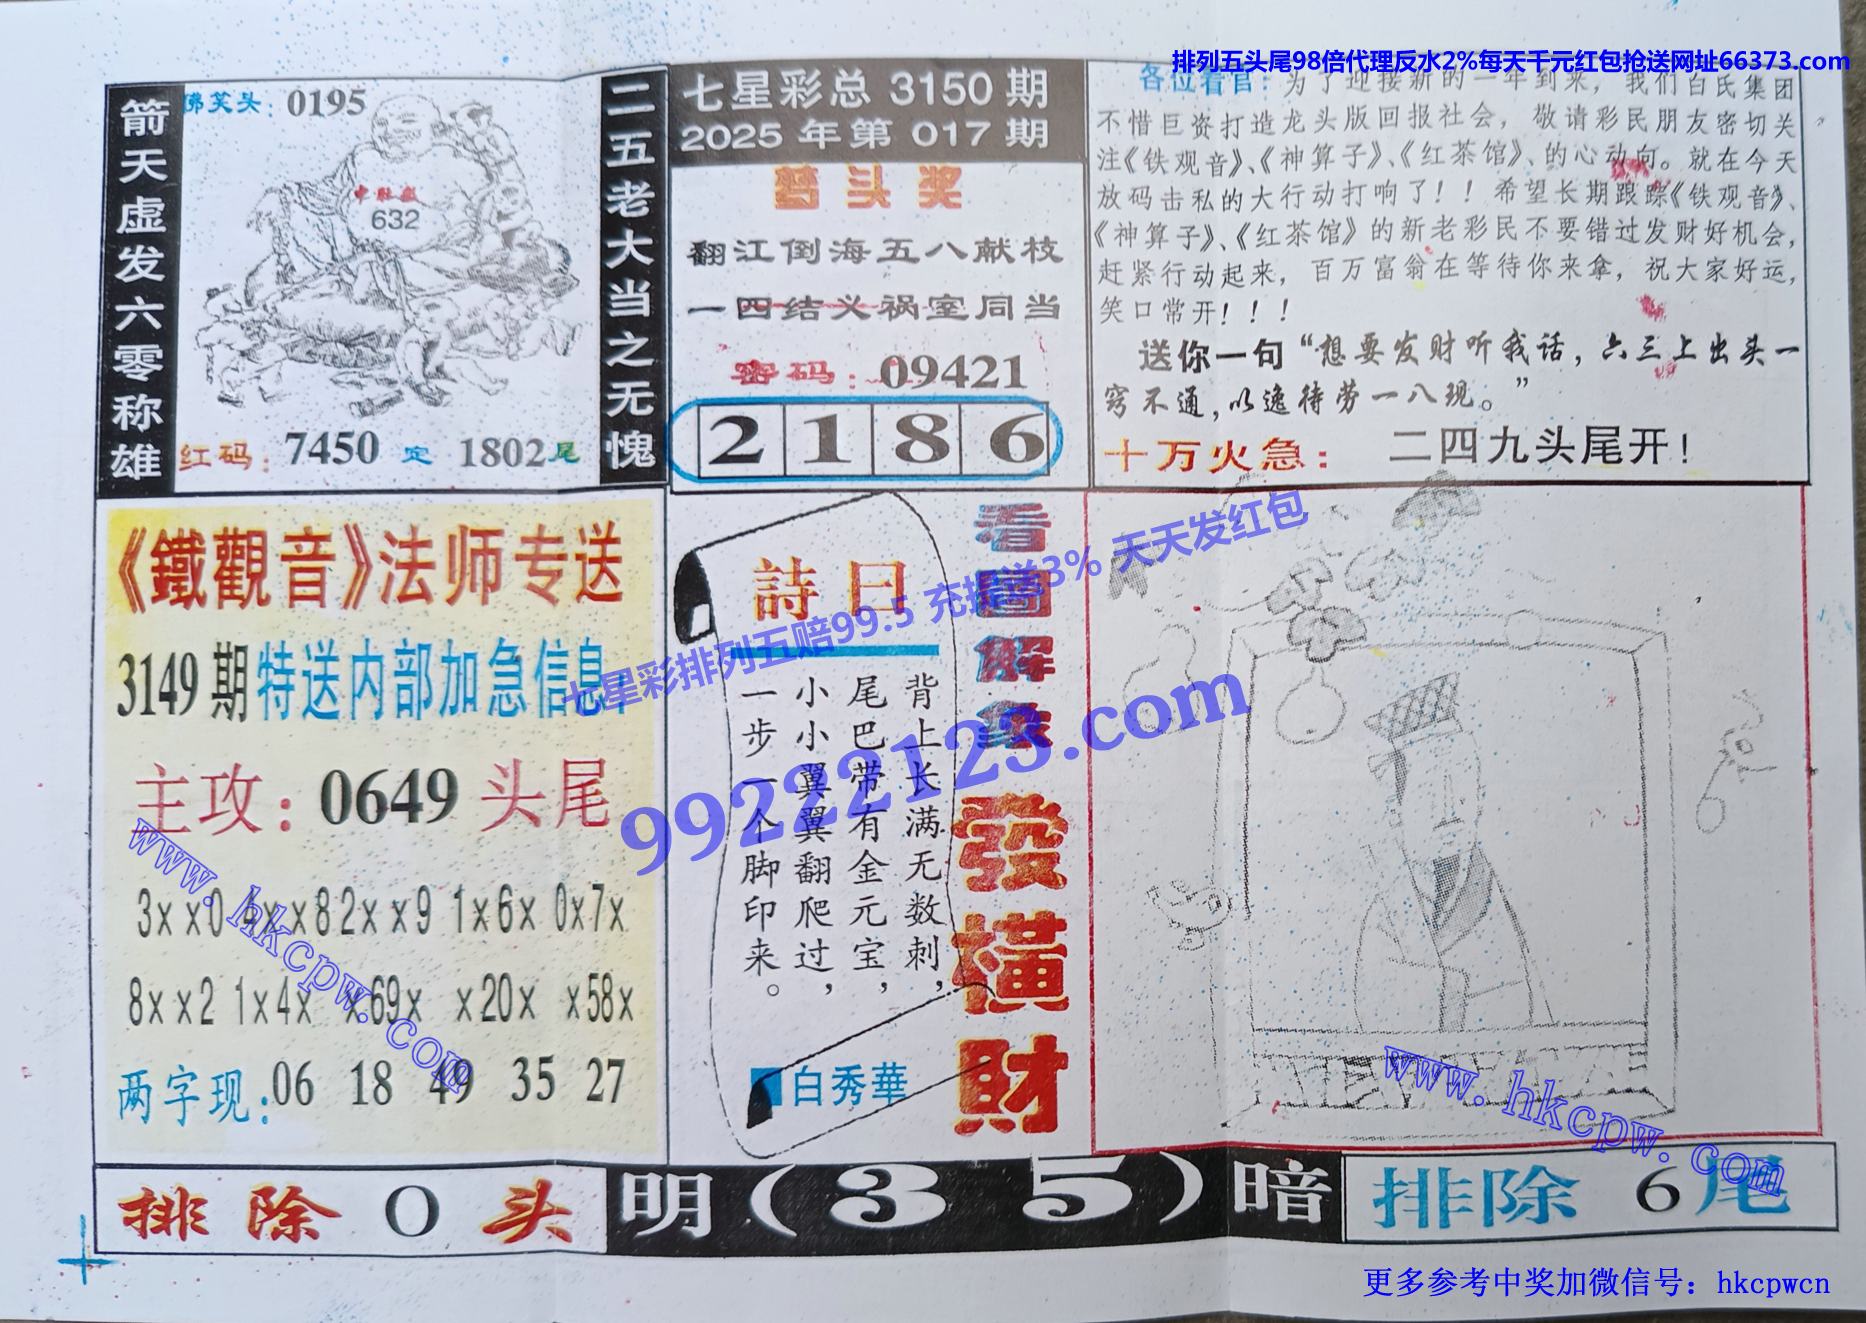 排列五头尾98倍代理反水2%每天千元红包抢送网址66373.com
箭天虚发六零称雄
佛笑头：0195
中肚数
632
红码：7450 定 1802尾
二五老大当之无愧
七星彩总 3150 期
2025 年第 017 期
梦头奖
翻江倒海五八献枝
一四结义祸室同当
密码：09421
2 1 8 6
各位看官：为了迎接新的一年到来，我们白氏集团
不惜巨资打造龙头版回报社会，敬请彩民朋友密切关
注《铁观音》、《神算子》、《红茶馆》、的心动向。就在今天
放码击私的大行动打响了！！希望长期跟踪《铁观音》、
《神算子》、《红茶馆》的新老彩民不要错过发财好机会，
赶紧行动起来，百万富翁在等待你来拿，祝大家好运，
笑口常开！！！
送你一句“想要发财听我话，六三上出头一
窍不通，以逸待劳一八现。”
十万火急：二四九头尾开！
《鐵觀音》法师专送
3149 期特送内部加急信息！
主攻：0649 头尾
3xx0 4xx8 2xx9 1x6x 0x7x
8xx2 1x4x x69x x20x x58x
两字现：06 18 49 35 27
詩曰
背上长满无数刺，
尾巴带有金元宝，
小小翼翼翻爬过，
一步一个脚印来。
白秀華
看圖解象
發橫財
七星彩排列五赔99.5 充提送3% 天天发红包
99222123.com
www.hkcpw.com
www.hkcpw.com
排除 0 头
明（35）暗
排除 6尾
更多参考中奖加微信号：hkcpwcn